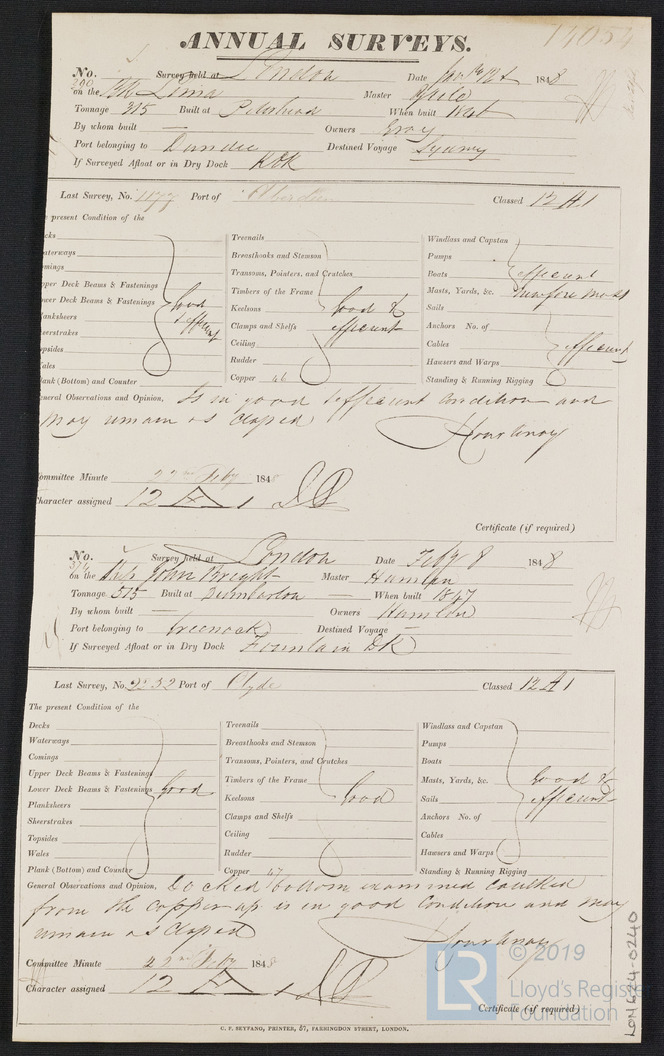 ANNUAL SURVEYS.
No. Survey held at London Date 1848
on the Bk Lima Master
Tonnage 315 Built at Peterhead When built
By whom built — Owners Gray
Port belonging to Dundee Destined Voyage Sydney
If Surveyed Afloat or in Dry Dock
Last Survey, No. 1177 Port of Aberdeen Classed 12 A 1
present Condition of the
Upper Deck Beams & Fastenings
Lower Deck Beams & Fastenings
Good & efficient
Plank (Bottom) and Counter
Treenails
Breasthooks and Stemson
Transoms, Pointers, and Crutches
Timbers of the Frame
Keelsons Good &
Clamps and Shelfs efficient
Ceiling
Rudder
Copper 46
Windlass and Capstan
Pumps
Boats efficient
Masts, Yards, &c.
Sails
Anchors No. of
Cables efficient
Hawsers and Warps
Standing & Running Rigging
General Observations and Opinion, Is in good & efficient condition and
may remain as classed
Committee Minute 22nd Feby 1848
Character assigned 12 A 1
Certificate (if required)
No. Survey held at London Date Feby 8 1848
on the Ship John Bright Master Hamlin
Tonnage 515 Built at Dumbarton When built 1847
By whom built — Owners Hamlin
Port belonging to Greenock Destined Voyage —
If Surveyed Afloat or in Dry Dock Fountain Dk
Last Survey, No. 2232 Port of Clyde Classed 12 A 1
The present Condition of the
Decks
Waterways
Comings
Upper Deck Beams & Fastenings
Lower Deck Beams & Fastenings Good
Planksheers
Sheerstrakes
Topsides
Wales
Plank (Bottom) and Counter
Treenails
Breasthooks and Stemson
Transoms, Pointers, and Crutches
Timbers of the Frame
Keelsons Good
Clamps and Shelfs
Ceiling
Rudder
Copper 47
Windlass and Capstan
Pumps
Boats
Masts, Yards, &c. Good &
Sails efficient
Anchors No. of
Cables
Hawsers and Warps
Standing & Running Rigging
General Observations and Opinion, Docked bottom examined caulked
from the copper up is in good condition and may
remain as classed
Committee Minute 22nd Feby 1848
Character assigned 12 A 1
Certificate (if required)
C. F. SEYFANG, PRINTER, 57, FARRINGDON STREET, LONDON.
LR © 2019
Lloyd's Register
Foundation
LON624-0240